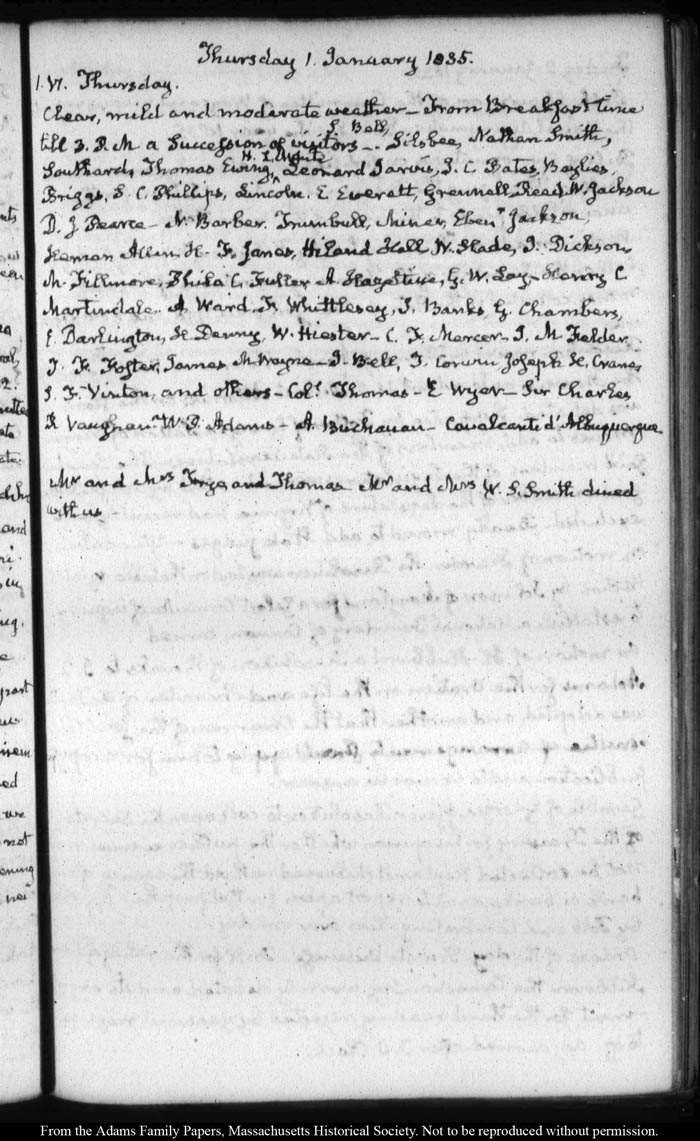 Thursday 1. January 1835.
1. VI. Thursday.
Clear, mild and moderate weather – From Breakfast time
till 3. P.M a succession of visitors – S. Bell, Silsbee, Nathan Smith,
Southard, Thomas Ewing, H. L. White, Leonard Jarvis, I. C. Bates, Baylies,
Briggs, S. C. Phillips, Lincoln. E. Everett, Grennell, Reed, W. Jackson
D. J Pearce – N. Barber. Trumbull, Miner, Eben.r Jackson,
Heman Allen, H. F. Janes, Hiland Hall W. Slade, J. Dickson
M. Fillmore, Philo C. Fuller A. Hazeltine, G. W. Lay – Henry C
Martindale. A. Ward. F. Whittlesey, J. Banks, G. Chambers,
E. Darlington, H. Denny, W. Hiester – C. F. Mercer – J. M Felder.
T. F. Foster, James M Wayne – J. Bell, T. Corwin Joseph H. Crane,
S. F. Vinton, and others – Col.l Thomas – E Wyer – Sir Charles
R Vaughan W. P. Adams – A. Buchanan – Cavalcanti d'Albuquerque
Mr and Mrs Frye, and Thomas – Mr and Mrs W. S. Smith dined
with us
From the Adams Family Papers, Massachusetts Historical Society. Not to be reproduced without permission.